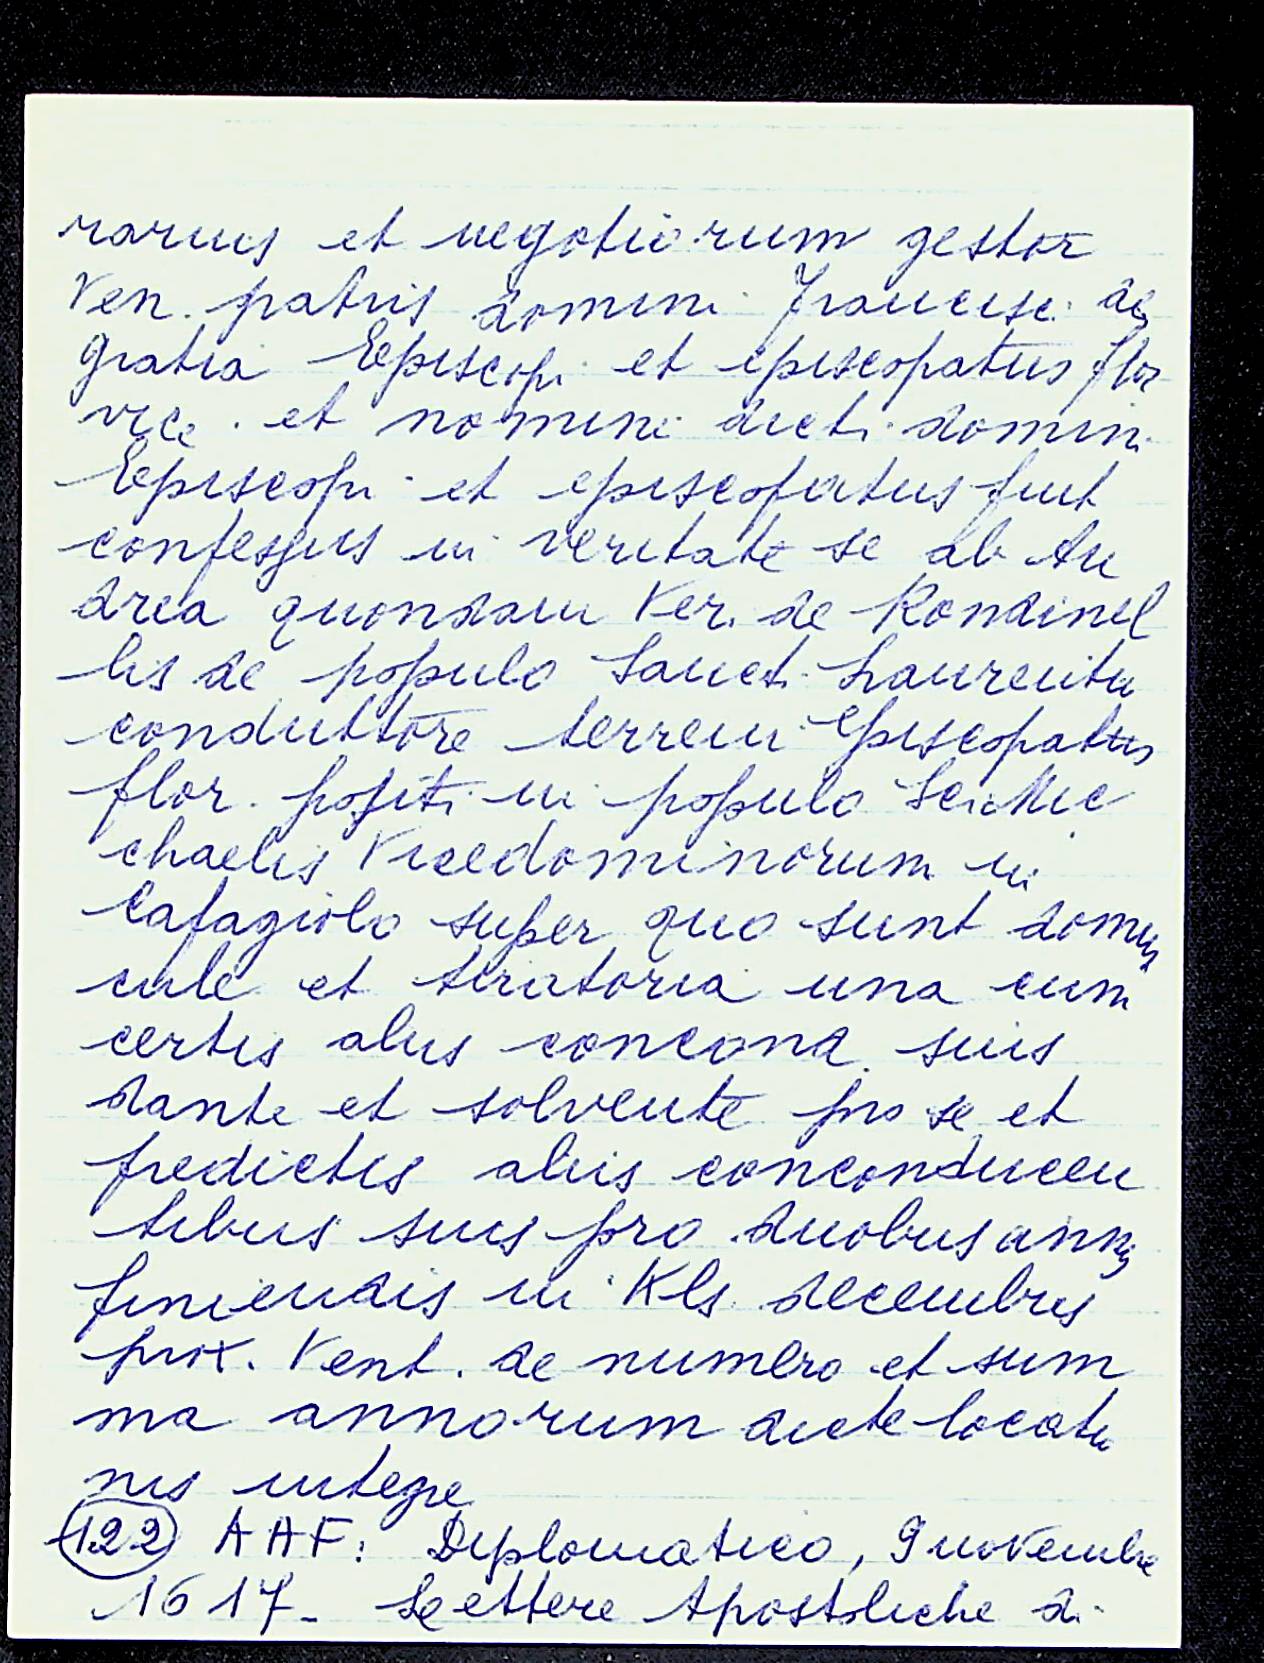 rarius et negotiorum gestor
Ven. patris domini Francisci dei
gratia Episcopi et episcopatus flor
vice et nomine dicti domini
Episcopi et episcopatus fuit
confessus in veritate se ab An
drea quondam Ver. de Rondinel
lis de populo Sancti Laurentii
conduttore terreni Episcopatus
flor. positi in populo Sci Mic
chaelis Vicedominorum in
Cafagiolo super quo sunt domun
cule et tiratoria una cum
certis aliis concond. suis
dante et solvente pro se et
predictis aliis conconducen
tibus suis pro duobus annis
finiendis in Kls decembris
prox. Vent. de numero et sum
ma annorum dicte locatio
nis integre
122 AAF: Diplomatico, 9 novembre
1617 - Lettere Apostoliche di